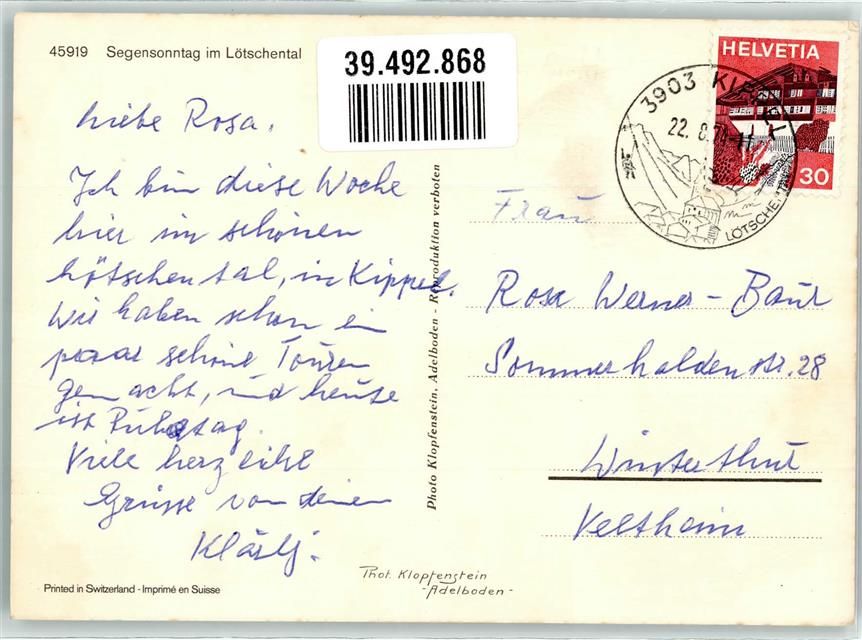 45919 Segensonntag im Lötschental
39.492.868
HELVETIA
30
3903 KIPPEL
22. 8. 7
LÖTSCHEN
Liebe Rosa,
Ich bin diese Woche
hier im schönen
Lötschental, in Kippel.
Wir haben schon ein
paar schöne Touren
gemacht, und heute
ist Ruhetag.
Viele herzliche
Grüsse von deinem
Klärlj.
Photo Klopfenstein, Adelboden - Reproduktion verboten
Frau
Rosa Werner-Baur
Sommerhaldenstr. 28
Winterthur
Veltheim
Printed in Switzerland - Imprimé en Suisse
Phot. Klopfenstein
- Adelboden -